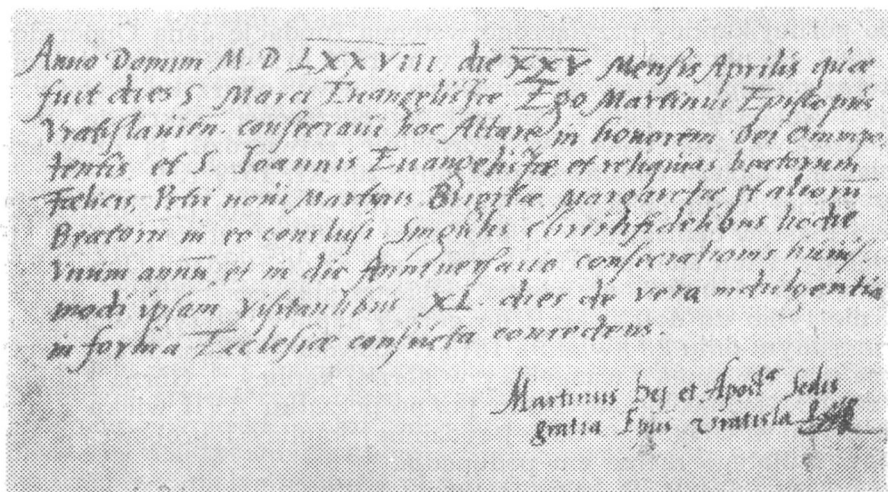 Anno Domini M. D LXXVIII. die XXV Mensis Aprilis quæ
fuit dies S. Marci Euangelistæ Ego Martinus Episcopus
Vratislauien. consecraui hoc Altare in honorem Dei Omnipo
tentis et S. Ioannis Euangelistæ et reliquias beatorum
Fælicis, Petri noui Martyris Brigitæ, Margaretæ et aliorū
Beatorū in eo conclusi. Singulis Christifidelibus hodie
Vnum annū, et in die Anniuersario consecrationis huius
modi ipsam visitantibus XL. dies de vera indulgentia
in forma Ecclesiæ consueta concedens.
Martinus Dei et Apostᵃᵉ Sedis
gratia Epus Vratisla